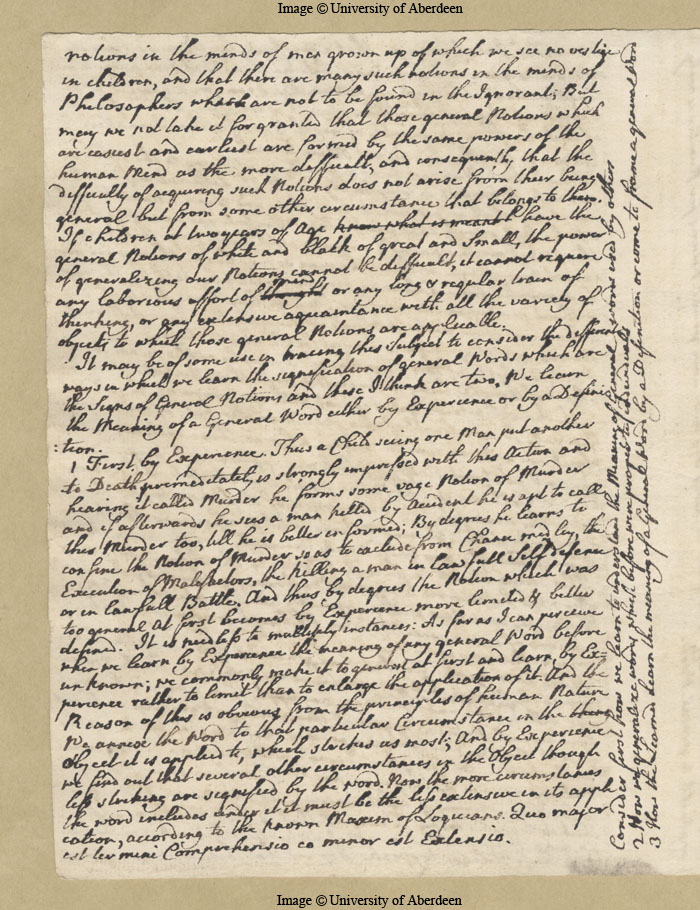 Image © University of Aberdeen
notions in the minds of men grown up of which we see no vestige
in children, and that there are many such notions in the minds of
Philosophers which are not to be found in the Ignorant; But
may we not take it for granted that those general Notions which
are easiest and earliest are formed by the same powers of the
human Mind as the more difficult, and consequently, that the
difficulty of acquiring such Notions does not arise from their being
general but from some other circumstance that belongs to them.
If children at two years of Age know what is meant have the
general Notions of white and black of great and small, the power
of generalizing our Notions cannot be difficult, it cannot require
any laborious effort of thought mind or any long & regular train of
thinking, or any extensive aquaintance with all the variety of
objects to which those general Notions are applicable.
It may be of some use in tracing this subject to consider the different
ways in which we learn the signification of general Words which are
the Signs of General Notions and these I think are two. We learn
the Meaning of a General Word either by Experience or by a Defini
:tion.
1 First, by Experience. Thus a Child seeing one Man put another
to Death immediately, is strongly impressed with this Action and
hearing it called Murder he forms some vage Notion of Murder
and if afterwards he sees a man killed by Acident he is apt to call
this Murder too, till he is better informed; By degrees he learns to
confine the Notion of Murder so as to exclude from Chance medley, the
Execution of Malefactors, the killing a man in lawfull Self defence
or in lawfull Battle. And thus by degrees the Notion which was
too general at first becomes by Experience more limited & better
defined. It is needless to multiply instances: As far as I can perceive
when we learn by Experience the meaning of any general Word before
unknown; we commonly make it to general at first and learn by Ex-
perience rather to limit than to enlarge the application of it. And the
Reason of this is obvious from the principles of human Nature
We annex the Word to that particular Circumstance in the
Object it is applied to, which strikes us most; And by Experience
we find out that several other circumstances in the Object though
less striking are signified by the word. Now the more circumstances
the word includes under it it must be the less extensive in its appli
cation, according to the known Maxim of Logicians. Quo major
est termini Comprehensio eo minor est Extensio.
Consider first how we learn to understand the Meaning of general words used by others
2 How we generalize words which before were proper to individuals
3 How the Learned learn the meaning of a General Word by a Definition or come to frame a general Word
Image © University of Aberdeen